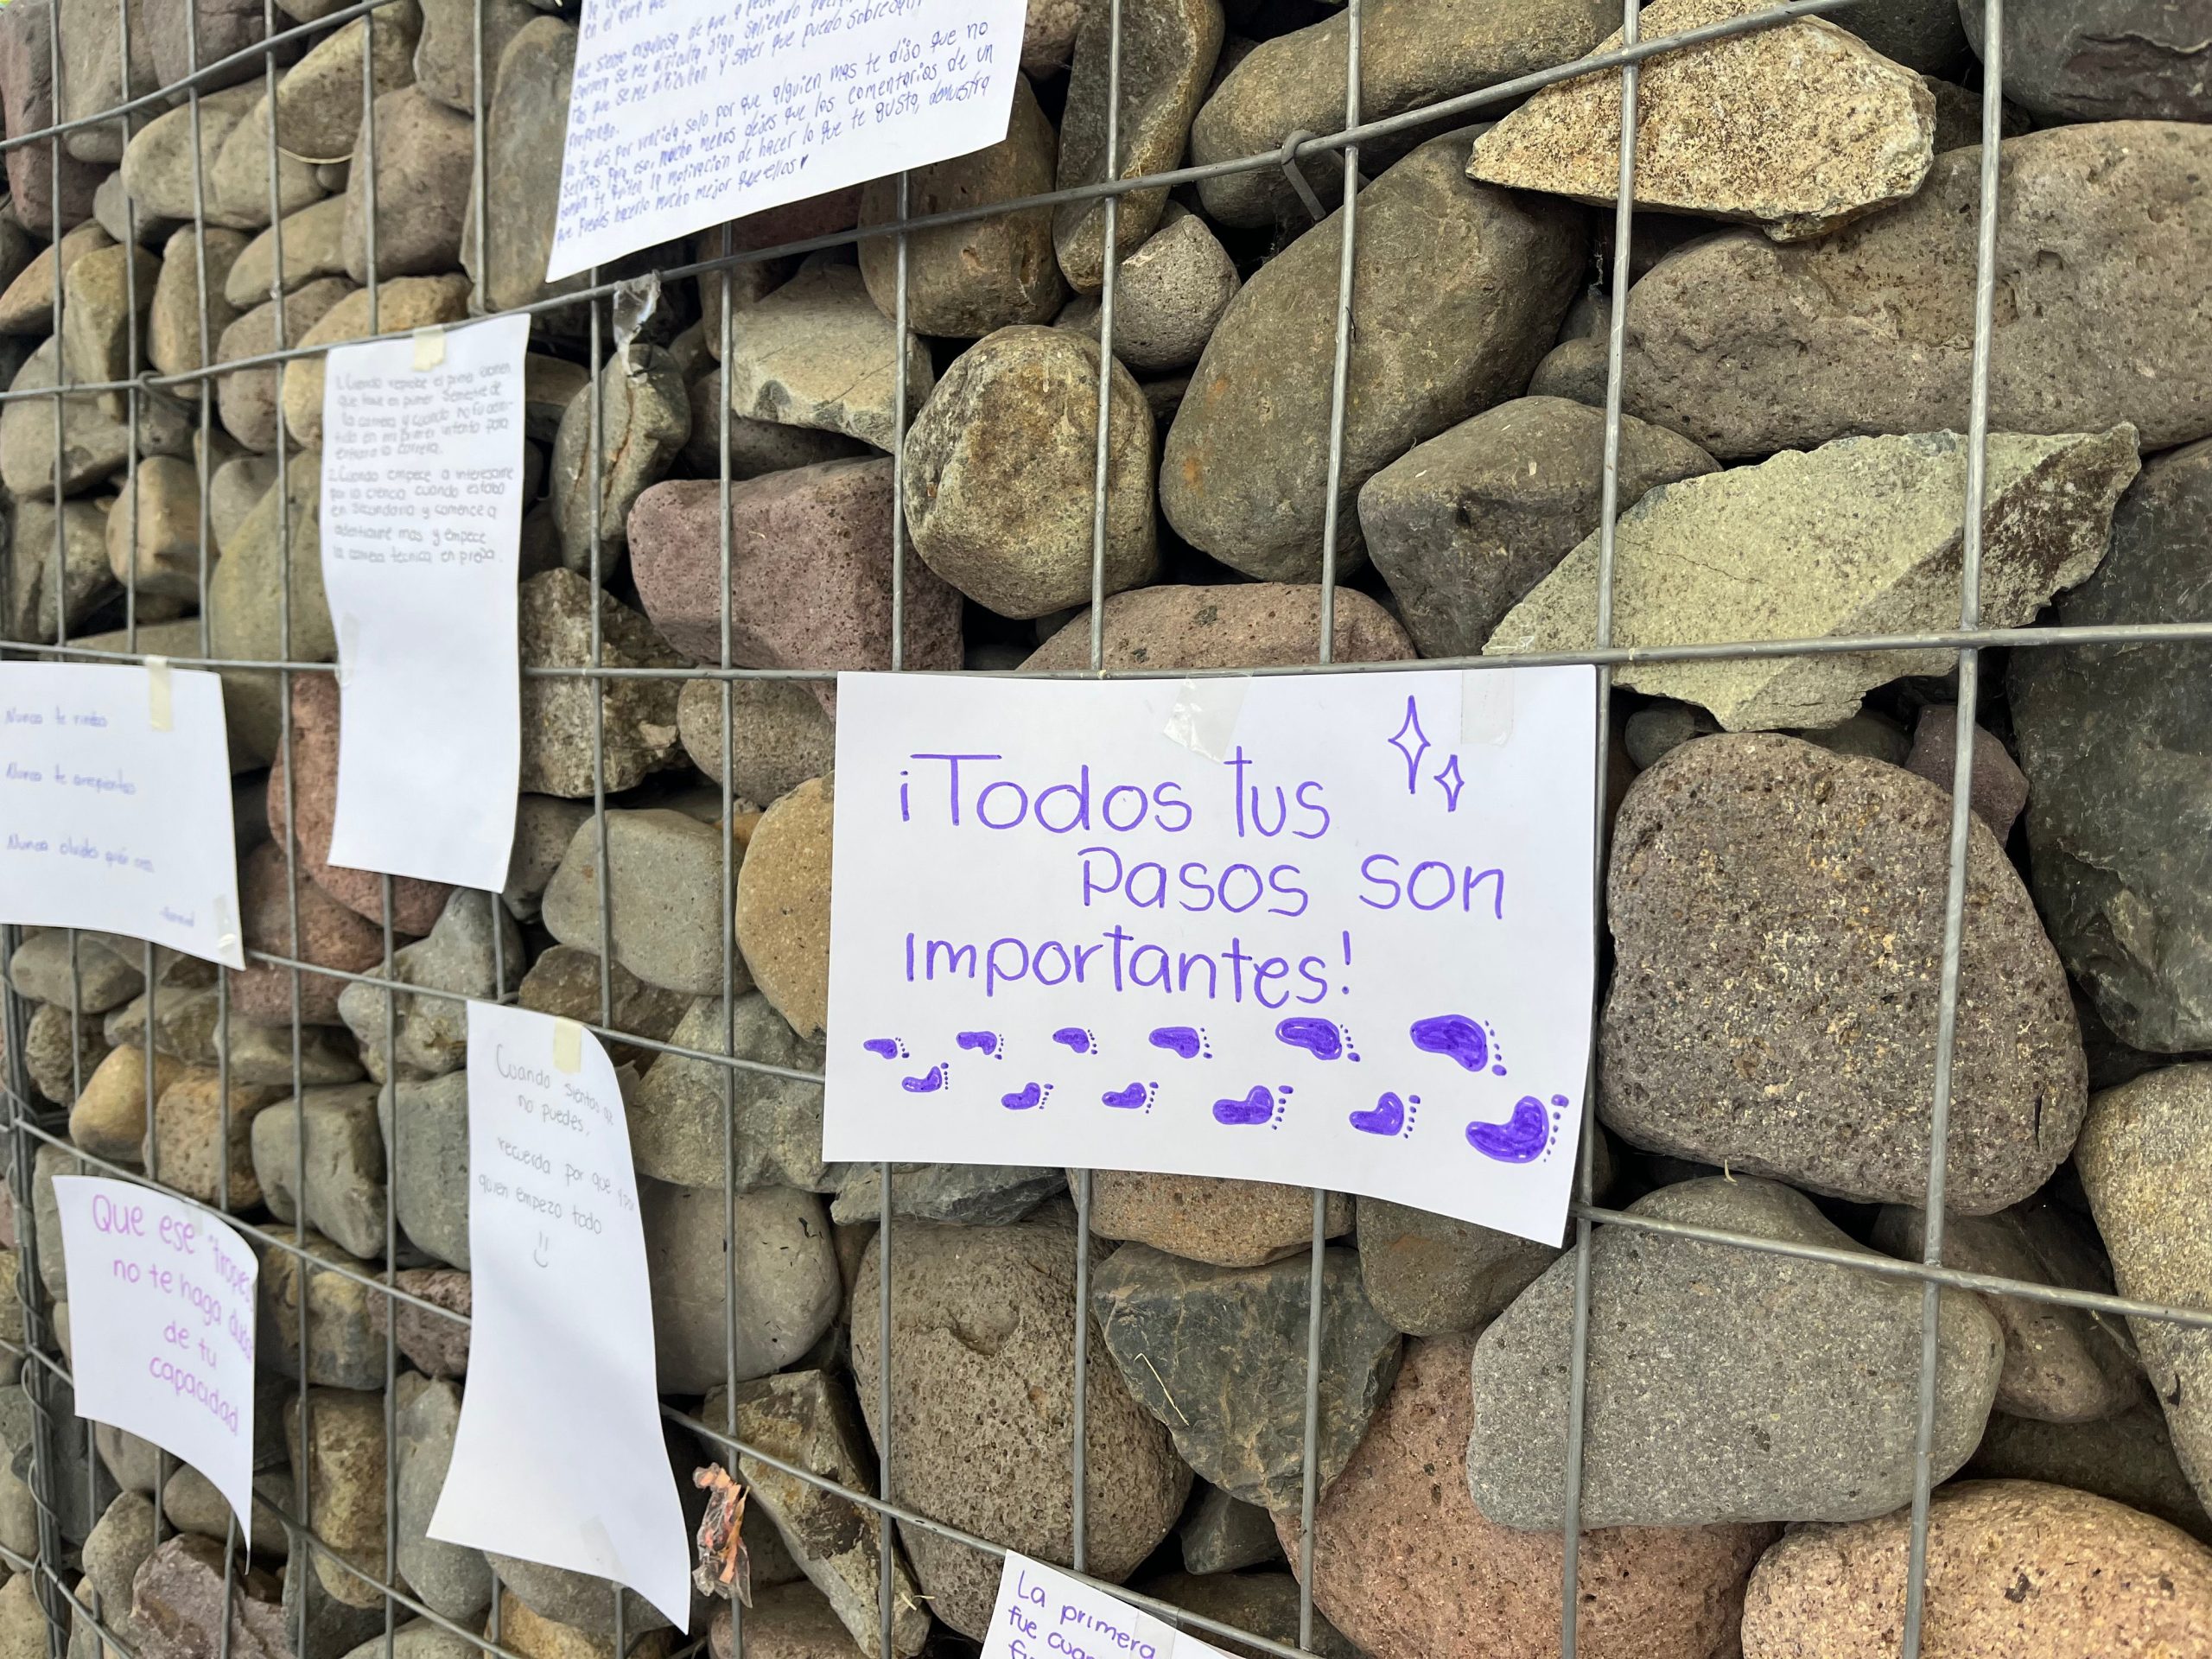 en el que
me siento orgulloso de que a pesar
carrera se me dificulta sigo saliendo
que se me dificultan y saber que puedo sobre
propongo.
No te des por vencido solo por que alguien mas te dijo que no
servias para eso, mucho menos dejes que los comentarios de un
te quiten la motivacion de hacer lo que te gusta, demuestra
que puedes hacerlo mucho mejor que ellos
1. Cuando reprobe el primer examen
que tuve en primer semestre de
la carrera y cuando no fui admi-
tido en mi primer intento para
entrar a la carrera.
2. Cuando empece a interesarme
por la ciencia cuando estaba
en secundaria y comence a
adentrarme mas y empece
la carrera tecnica en prepa.
Nunca te rindas
Nunca te arrepientas
Nunca olvides quién eres
¡Todos tus
pasos son
importantes!
Cuando sientas que
no puedes,
recuerda por que y por
quien empezo todo
Que ese
no te haga dudar
de tu
capacidad
La primera
fue